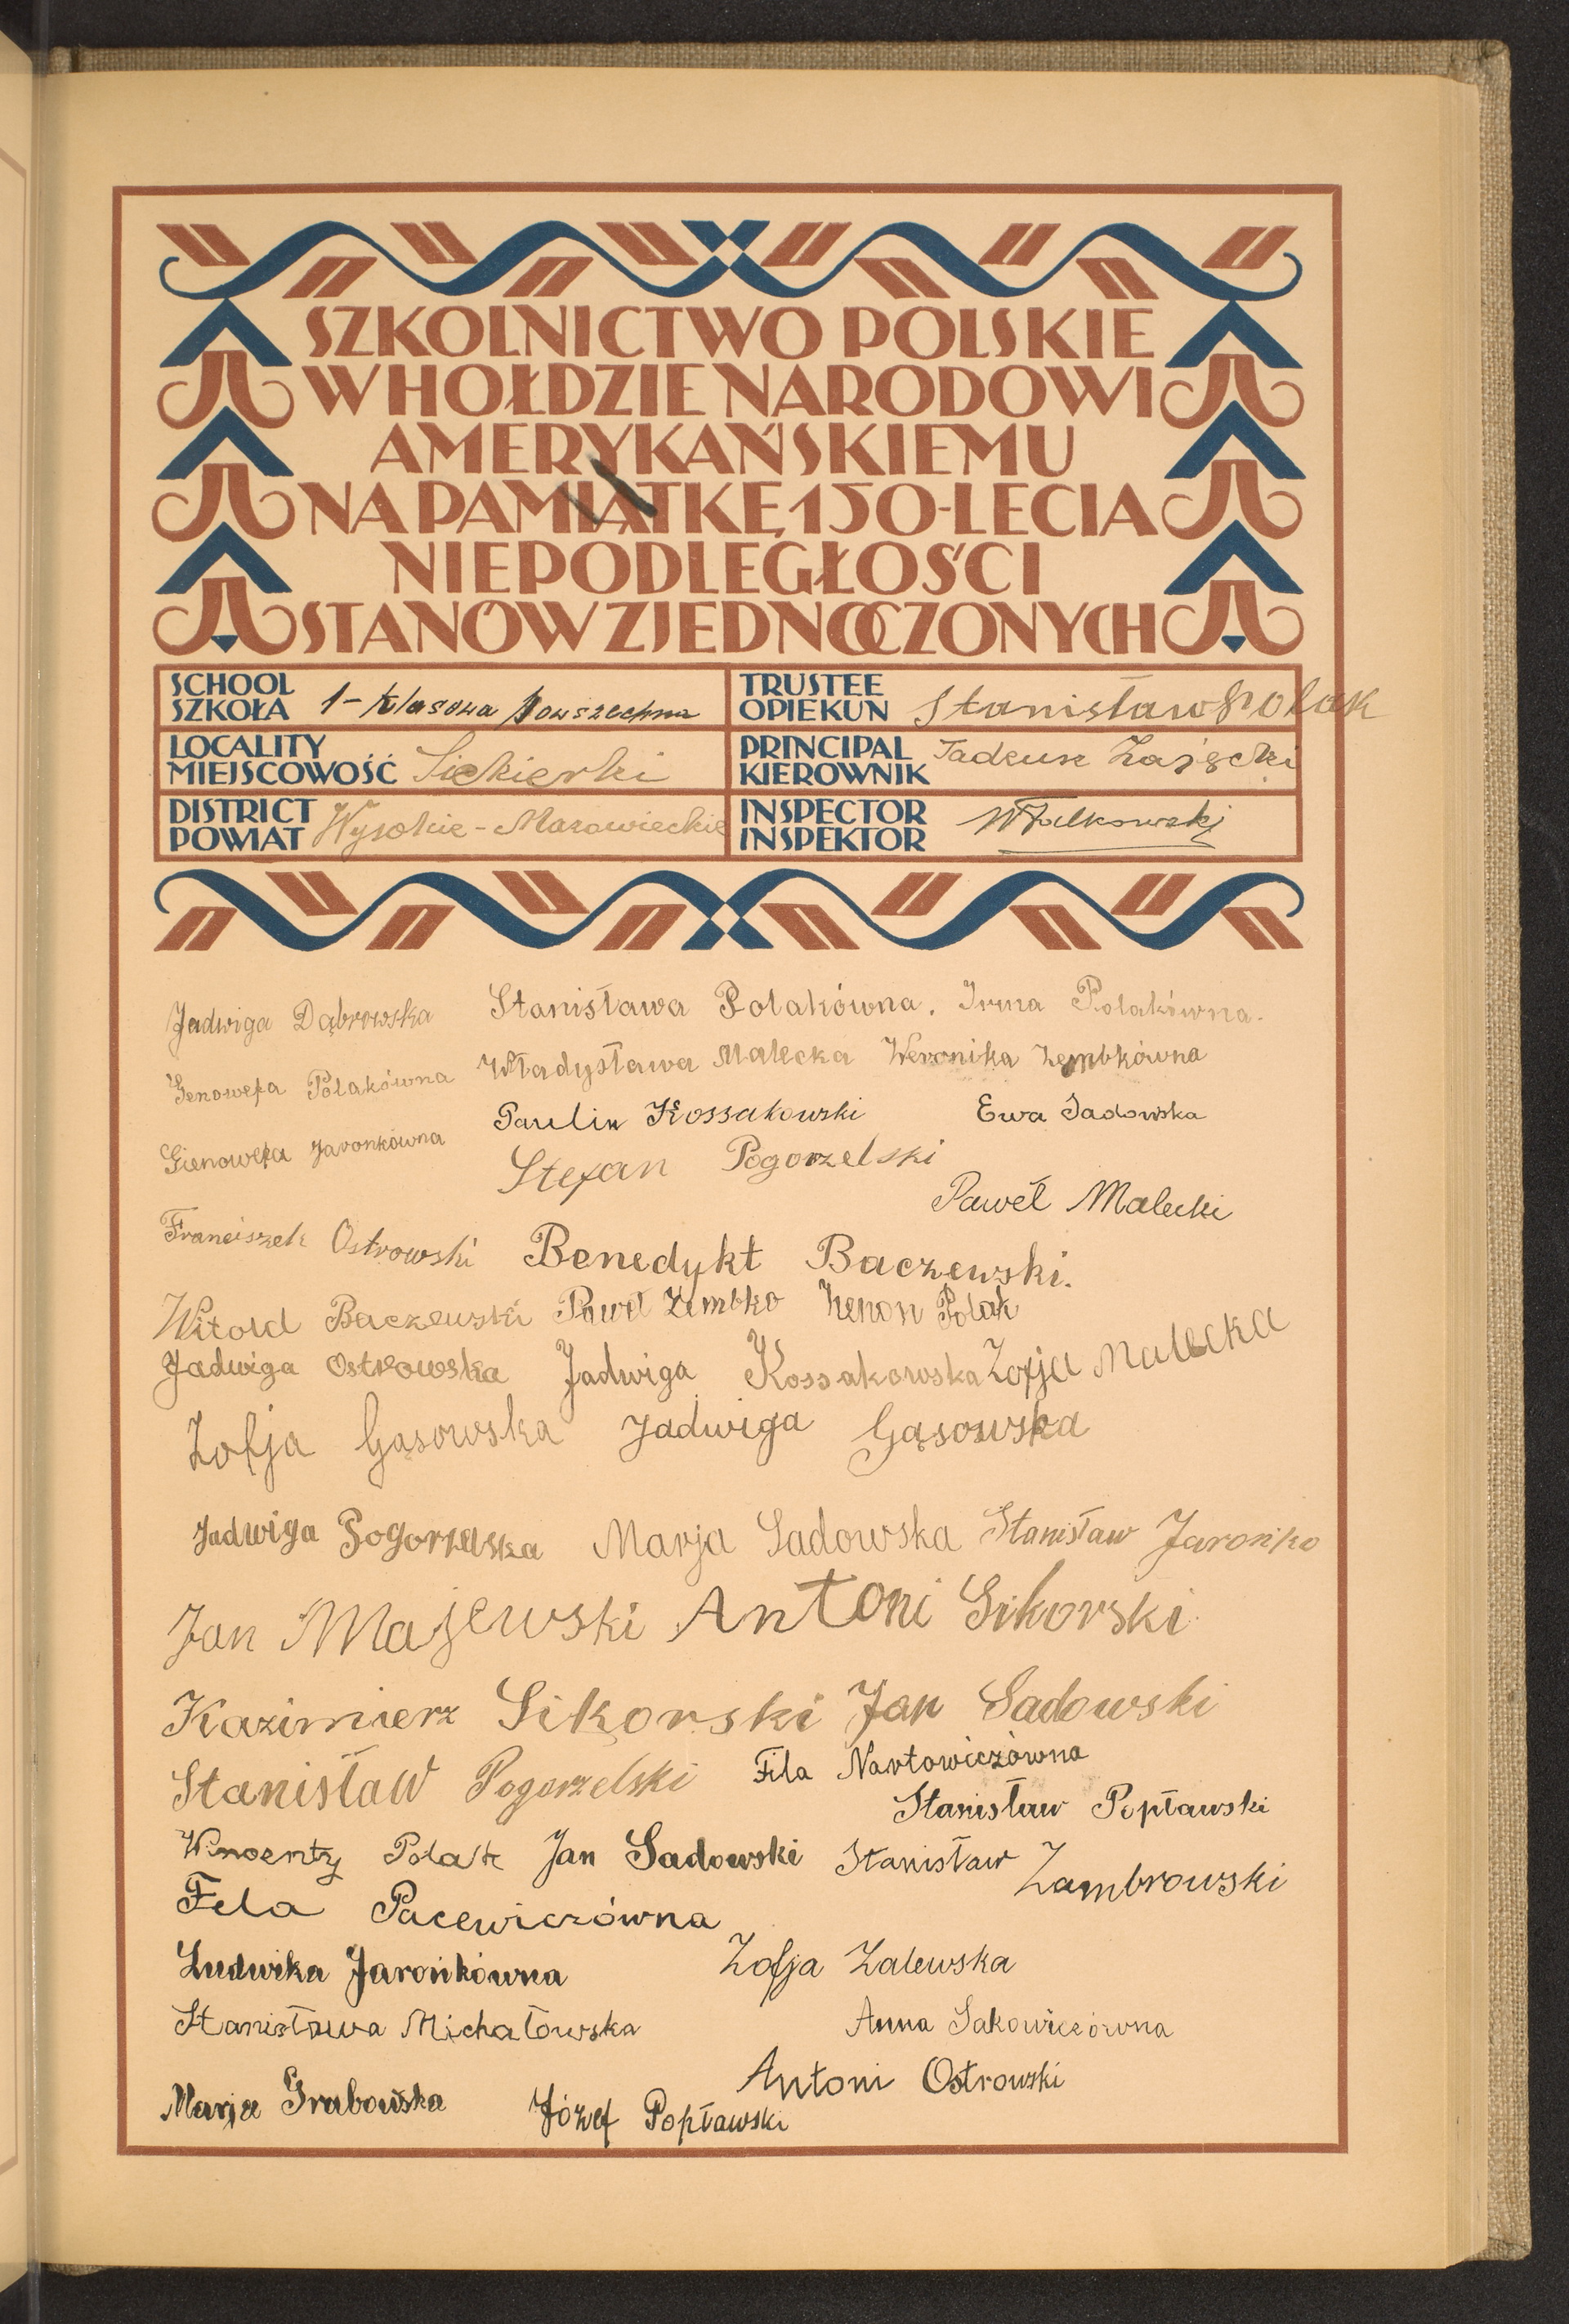 SZKOLNICTWO POLSKIE
W HOŁDZIE NARODOWI
AMERYKAŃSKIEMU
NA PAMIĄTKĘ 150-LECIA
NIEPODLEGŁOŚCI
STANÓW ZJEDNOCZONYCH
SCHOOL
SZKOŁA 1-klasowa Powszechna
TRUSTEE
OPIEKUN Stanisław Polak
LOCALITY
MIEJSCOWOŚĆ Siekierki
PRINCIPAL
KIEROWNIK Tadeusz Zajęcki
DISTRICT
POWIAT Wysokie-Mazowieckie
INSPECTOR
INSPEKTOR WFalkowski
Jadwiga Dąbrowska Stanisława Polakówna. Irma Polakówna.
Genowefa Polakówna Władysława Malecka Weronika Zembkówna
Paulin Kossakowski Ewa Sadowska
Gienowefa Jaronkówna Stefan Pogorzelski
Paweł Malecki
Franciszek Ostrowski Benedykt Baczewski.
Witold Baczewski Paweł Zembko Zenon Polak
Jadwiga Ostrowska Jadwiga Kossakowska Zofja Malecka
Zofja Gąsowska Jadwiga Gąsowska
Jadwiga Pogorzelska Marja Sadowska Stanisław Jarońko
Jan Majewski Antoni Sikorski
Kazimierz Sikorski Jan Sadowski
Stanisław Pogorzelski Fila Nartowiczówna
Stanisław Popławski
Wincenty Polak Jan Sadowski Stanisław Zambrowski
Fela Pacewiczówna
Ludwika Jarońkówna Zofja Zalewska
Stanisława Michałowska Anna Sakowiczówna
Antoni Ostrowski
Marja Grabowska Józef Popławski